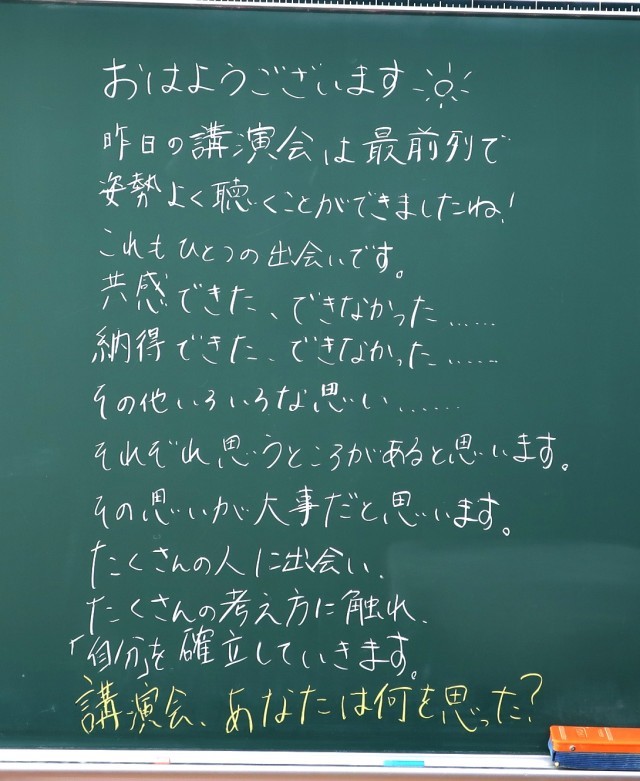 おはようございます
昨日の講演会は最前列で
姿勢よく聴くことができましたね!
これもひとつの出会いです。
共感できた、できなかった……
納得できた、できなかった……
その他いろいろな思い……
それぞれ思うところがあると思います。
その思いが大事だと思います。
たくさんの人に出会い、
たくさんの考え方に触れ、
「自分」を確立していきます。
講演会、あなたは何を思った?